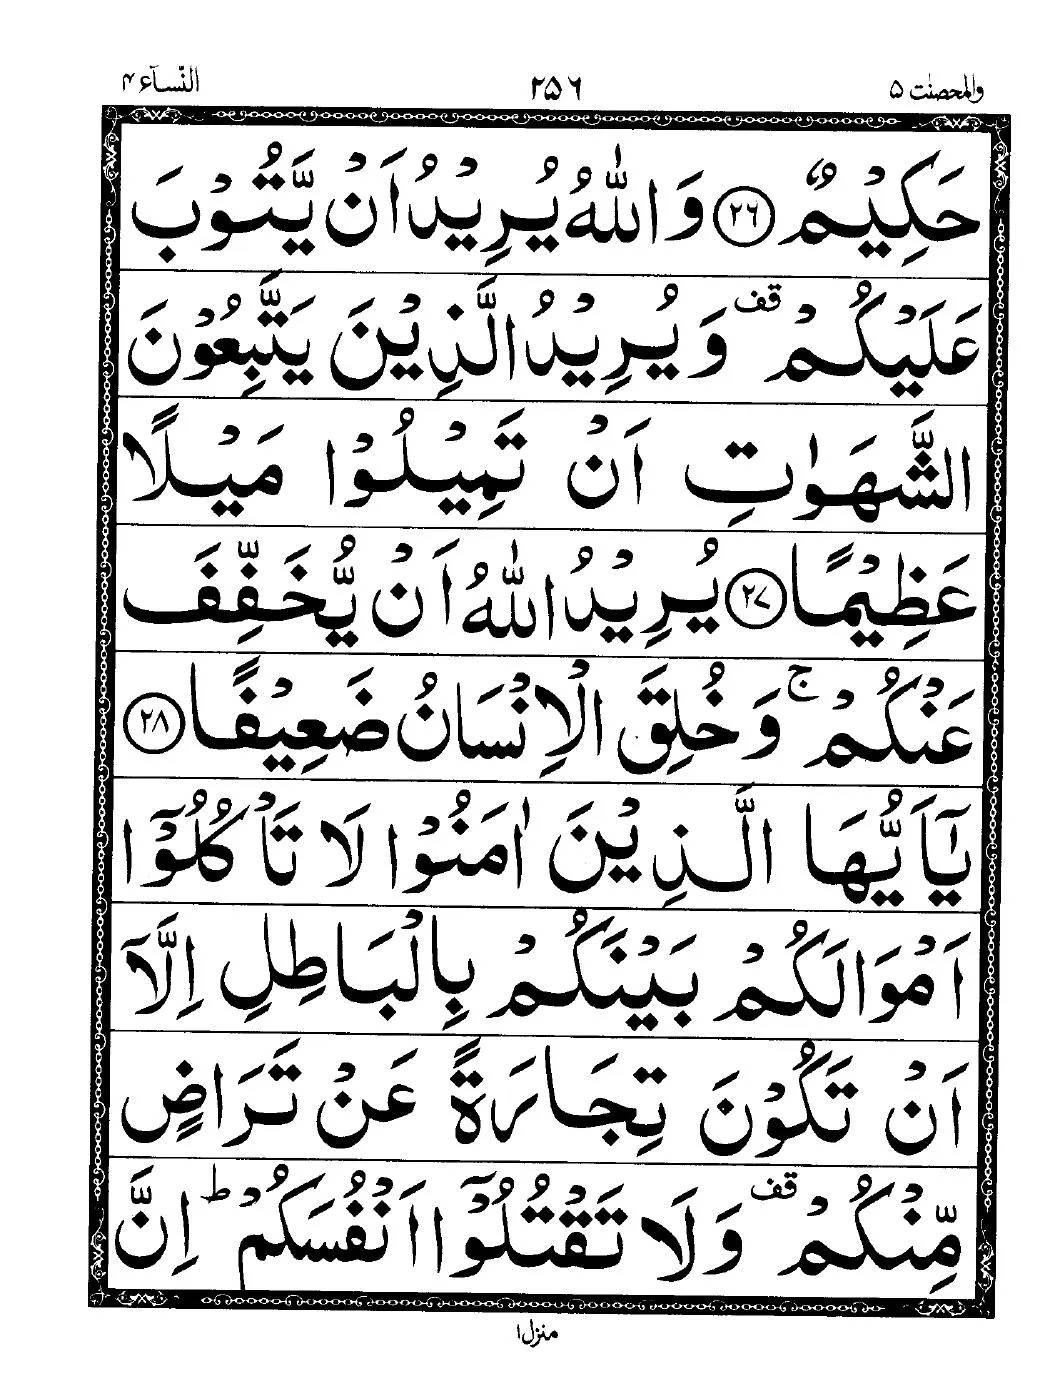 والمحصنٰت ۵ ۲۵۶ النّسآء ۴
حَكِيْمٌ ﴿۲۶﴾ وَ اللّٰهُ يُرِيْدُ اَنْ يَّتُوْبَ
عَلَيْكُمْ ۫ وَ يُرِيْدُ الَّذِيْنَ يَتَّبِعُوْنَ
الشَّهَوٰتِ اَنْ تَمِيْلُوْا مَيْلًا
عَظِيْمًا ﴿۲۷﴾ يُرِيْدُ اللّٰهُ اَنْ يُّخَفِّفَ
عَنْكُمْ ۚ وَ خُلِقَ الْاِنْسَانُ ضَعِيْفًا ﴿۲۸﴾
يٰۤاَيُّهَا الَّذِيْنَ اٰمَنُوْا لَا تَاْكُلُوْۤا
اَمْوَالَكُمْ بَيْنَكُمْ بِالْبَاطِلِ اِلَّاۤ
اَنْ تَكُوْنَ تِجَارَةً عَنْ تَرَاضٍ
مِّنْكُمْ قف وَلَا تَقْتُلُوْۤا اَنْفُسَكُمْ ؕ اِنَّ
منزل۱